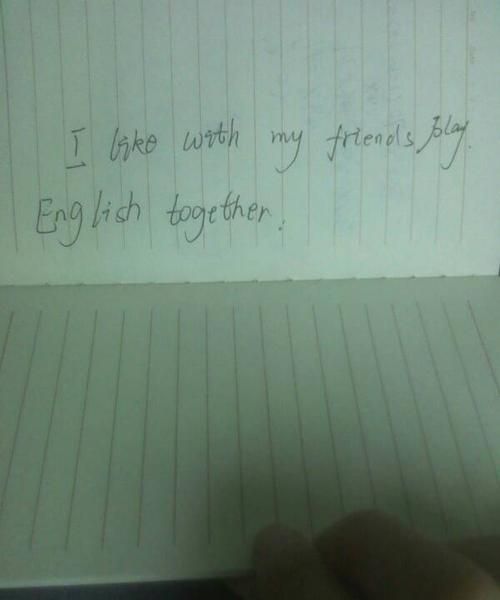 I like with my friends play.
English together.